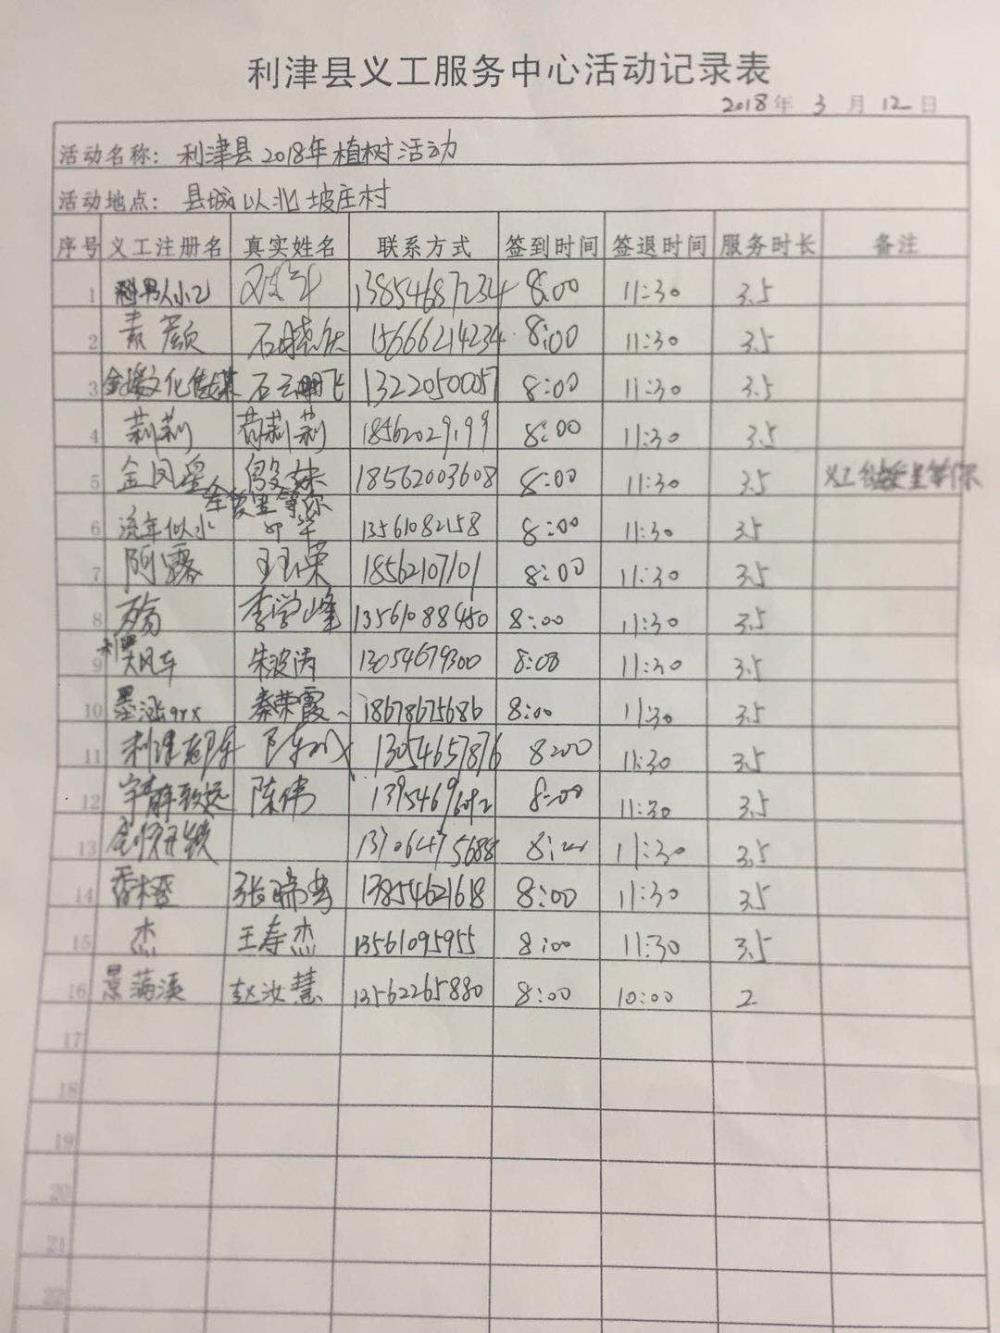 利津县义工服务中心活动记录表
2018年 3 月 12 日
活动名称：利津县2018年植树活动
活动地点：县城以北坡庄村
序号 义工注册名 真实姓名 联系方式 签到时间 签退时间 服务时长 备注
1 13854687234 8:00 11:30 3.5
2 素颜 石晓欣 15666214234 8:00 11:30 3.5
3 文化传媒 石 飞 1322050005 8:00 11:30 3.5
4 莉莉 莉莉 18562029199 8:00 11:30 3.5
5 金凤 18562003608 8:00 11:30 3.5 义工 里等你
6 流年似水 13561082158 8:00 11:30 3.5
7 阿露 王玉荣 18562107101 8:00 11:30 3.5
8 李学峰 13561088450 8:00 11:30 3.5
9 大风车 朱波涛 13054679300 8:00 11:30 3.5
10 墨 秦荣霞 18678675686 8:00 11:30 3.5
11 利津 陈 13054657876 8:00 11:30 3.5
12 宁静致远 陈伟 13954696092 8:00 11:30 3.5
13 开锁 13706475688 8:00 11:30 3.5
14 香橙 张瑞 13854621618 8:00 11:30 3.5
15 杰 王寿杰 13561095955 8:00 11:30 3.5
16 景荡漾 赵汝慧 13562265880 8:00 10:00 2
17
18
19
20
21
22